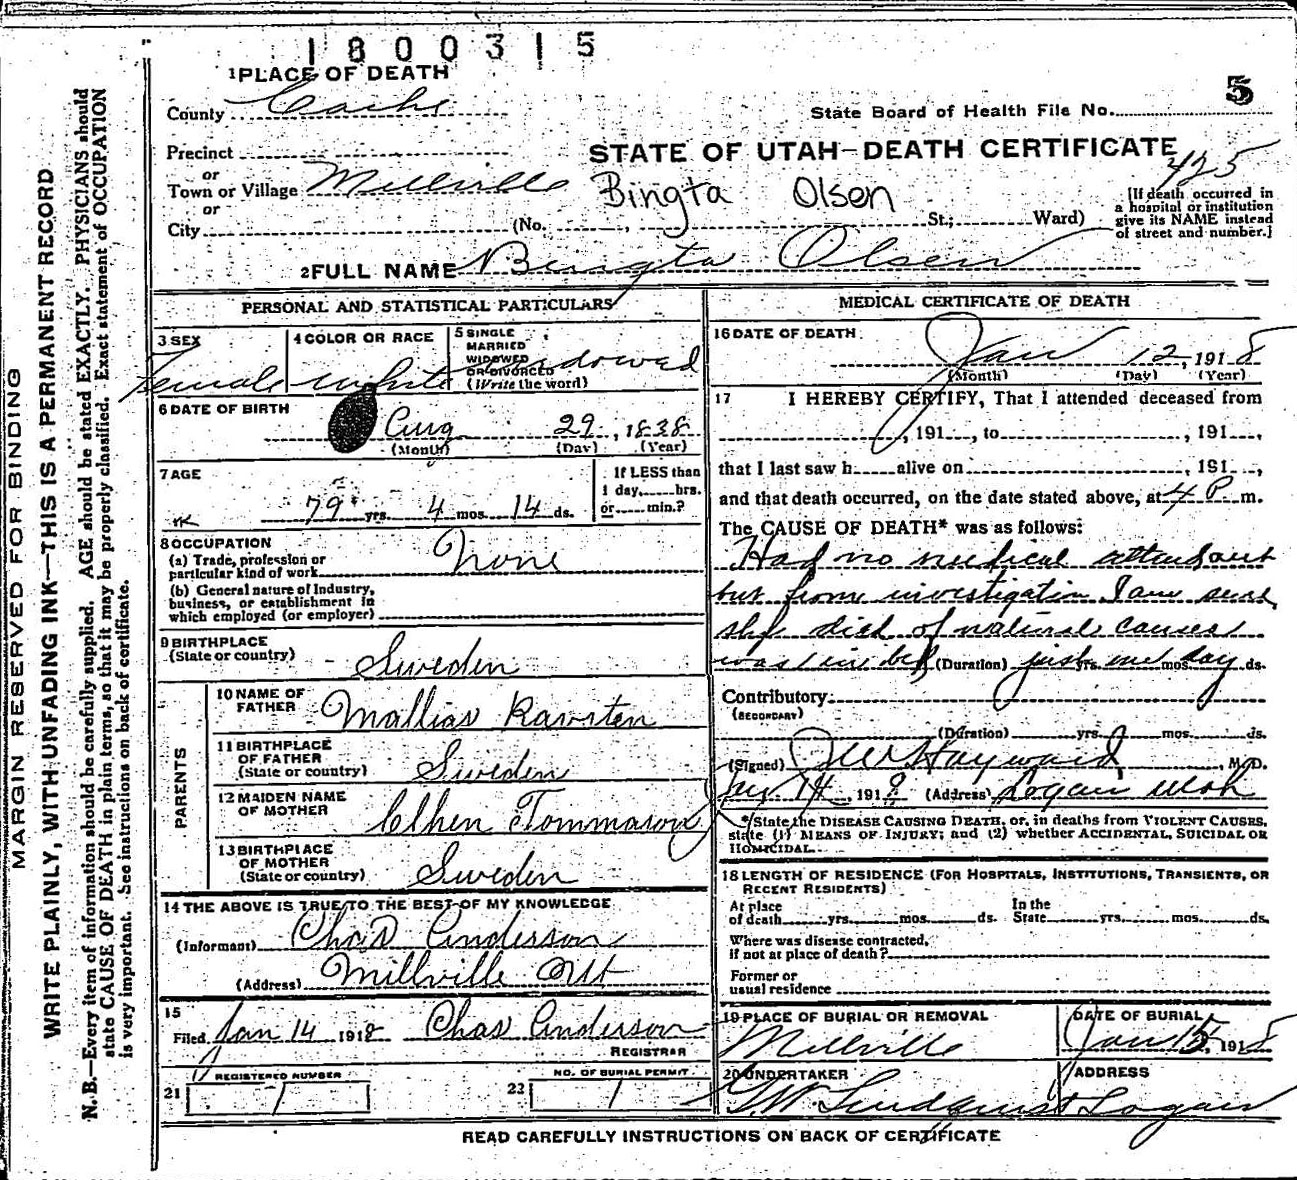 1800315
1 PLACE OF DEATH
5
County Cache
State Board of Health File No.
Precinct
STATE OF UTAH—DEATH CERTIFICATE
425
or
Town or Village Millville
Bingta Olsen
or
City (No. , St.; Ward)
[If death occurred in
a hospital or institution
give its NAME instead
of street and number.]
2 FULL NAME Bingta Olsen
MARGIN RESERVED FOR BINDING
WRITE PLAINLY, WITH UNFADING INK—THIS IS A PERMANENT RECORD
N. B.—Every item of information should be carefully supplied. AGE should be stated EXACTLY. PHYSICIANS should
state CAUSE OF DEATH in plain terms, so that it may be properly classified. Exact statement of OCCUPATION
is very important. See instructions on back of certificate.
PERSONAL AND STATISTICAL PARTICULARS
3 SEX
Female
4 COLOR OR RACE
White
5 SINGLE
MARRIED
WIDOWED
OR DIVORCED
(Write the word)
6 DATE OF BIRTH
Aug 29, 1838
(Month) (Day) (Year)
7 AGE
79 yrs. 4 mos. 14 ds.
If LESS than
1 day,.....hrs.
or.....min.?
8 OCCUPATION
(a) Trade, profession or
particular kind of work None
(b) General nature of Industry,
business, or establishment in
which employed (or employer)
9 BIRTHPLACE
(State or country) Sweden
PARENTS
10 NAME OF
FATHER
11 BIRTHPLACE
OF FATHER
(State or country) Sweden
12 MAIDEN NAME
OF MOTHER
13 BIRTHPLACE
OF MOTHER
(State or country) Sweden
14 THE ABOVE IS TRUE TO THE BEST OF MY KNOWLEDGE
(Informant) Chas Anderson
(Address) Millville Ut
15
Filed Jan 14 1918 Chas Anderson
REGISTRAR
REGISTERED NUMBER
21 1
NO. OF BURIAL PERMIT
22 1
MEDICAL CERTIFICATE OF DEATH
16 DATE OF DEATH
Jan 12, 1918
(Month) (Day) (Year)
17 I HEREBY CERTIFY, That I attended deceased from
, 191 , to , 191 ,
that I last saw h alive on , 191 ,
and that death occurred, on the date stated above, at 4 P. m.
The CAUSE OF DEATH* was as follows:
Had no medical attendant
but from investigation I am sure
she died of natural causes
was in bed (Duration) just yrs. one mos. day ds.
Contributory
(SECONDARY)
(Duration) yrs. mos. ds.
(Signed) J W Hayward, M.D.
14, 1918 (Address) Logan Utah
*State the DISEASE CAUSING DEATH, or, in deaths from VIOLENT CAUSES,
state (1) MEANS OF INJURY; and (2) whether ACCIDENTAL, SUICIDAL OR
HOMICIDAL.
18 LENGTH OF RESIDENCE (FOR HOSPITALS, INSTITUTIONS, TRANSIENTS, OR
RECENT RESIDENTS)
At place In the
of death yrs. mos. ds. State yrs. mos. ds.
Where was disease contracted,
if not at place of death?
Former or
usual residence
19 PLACE OF BURIAL OR REMOVAL
Millville
DATE OF BURIAL
Jan 15, 1918
20 UNDERTAKER
Lindquist
ADDRESS
Logan
READ CAREFULLY INSTRUCTIONS ON BACK OF CERTIFICATE